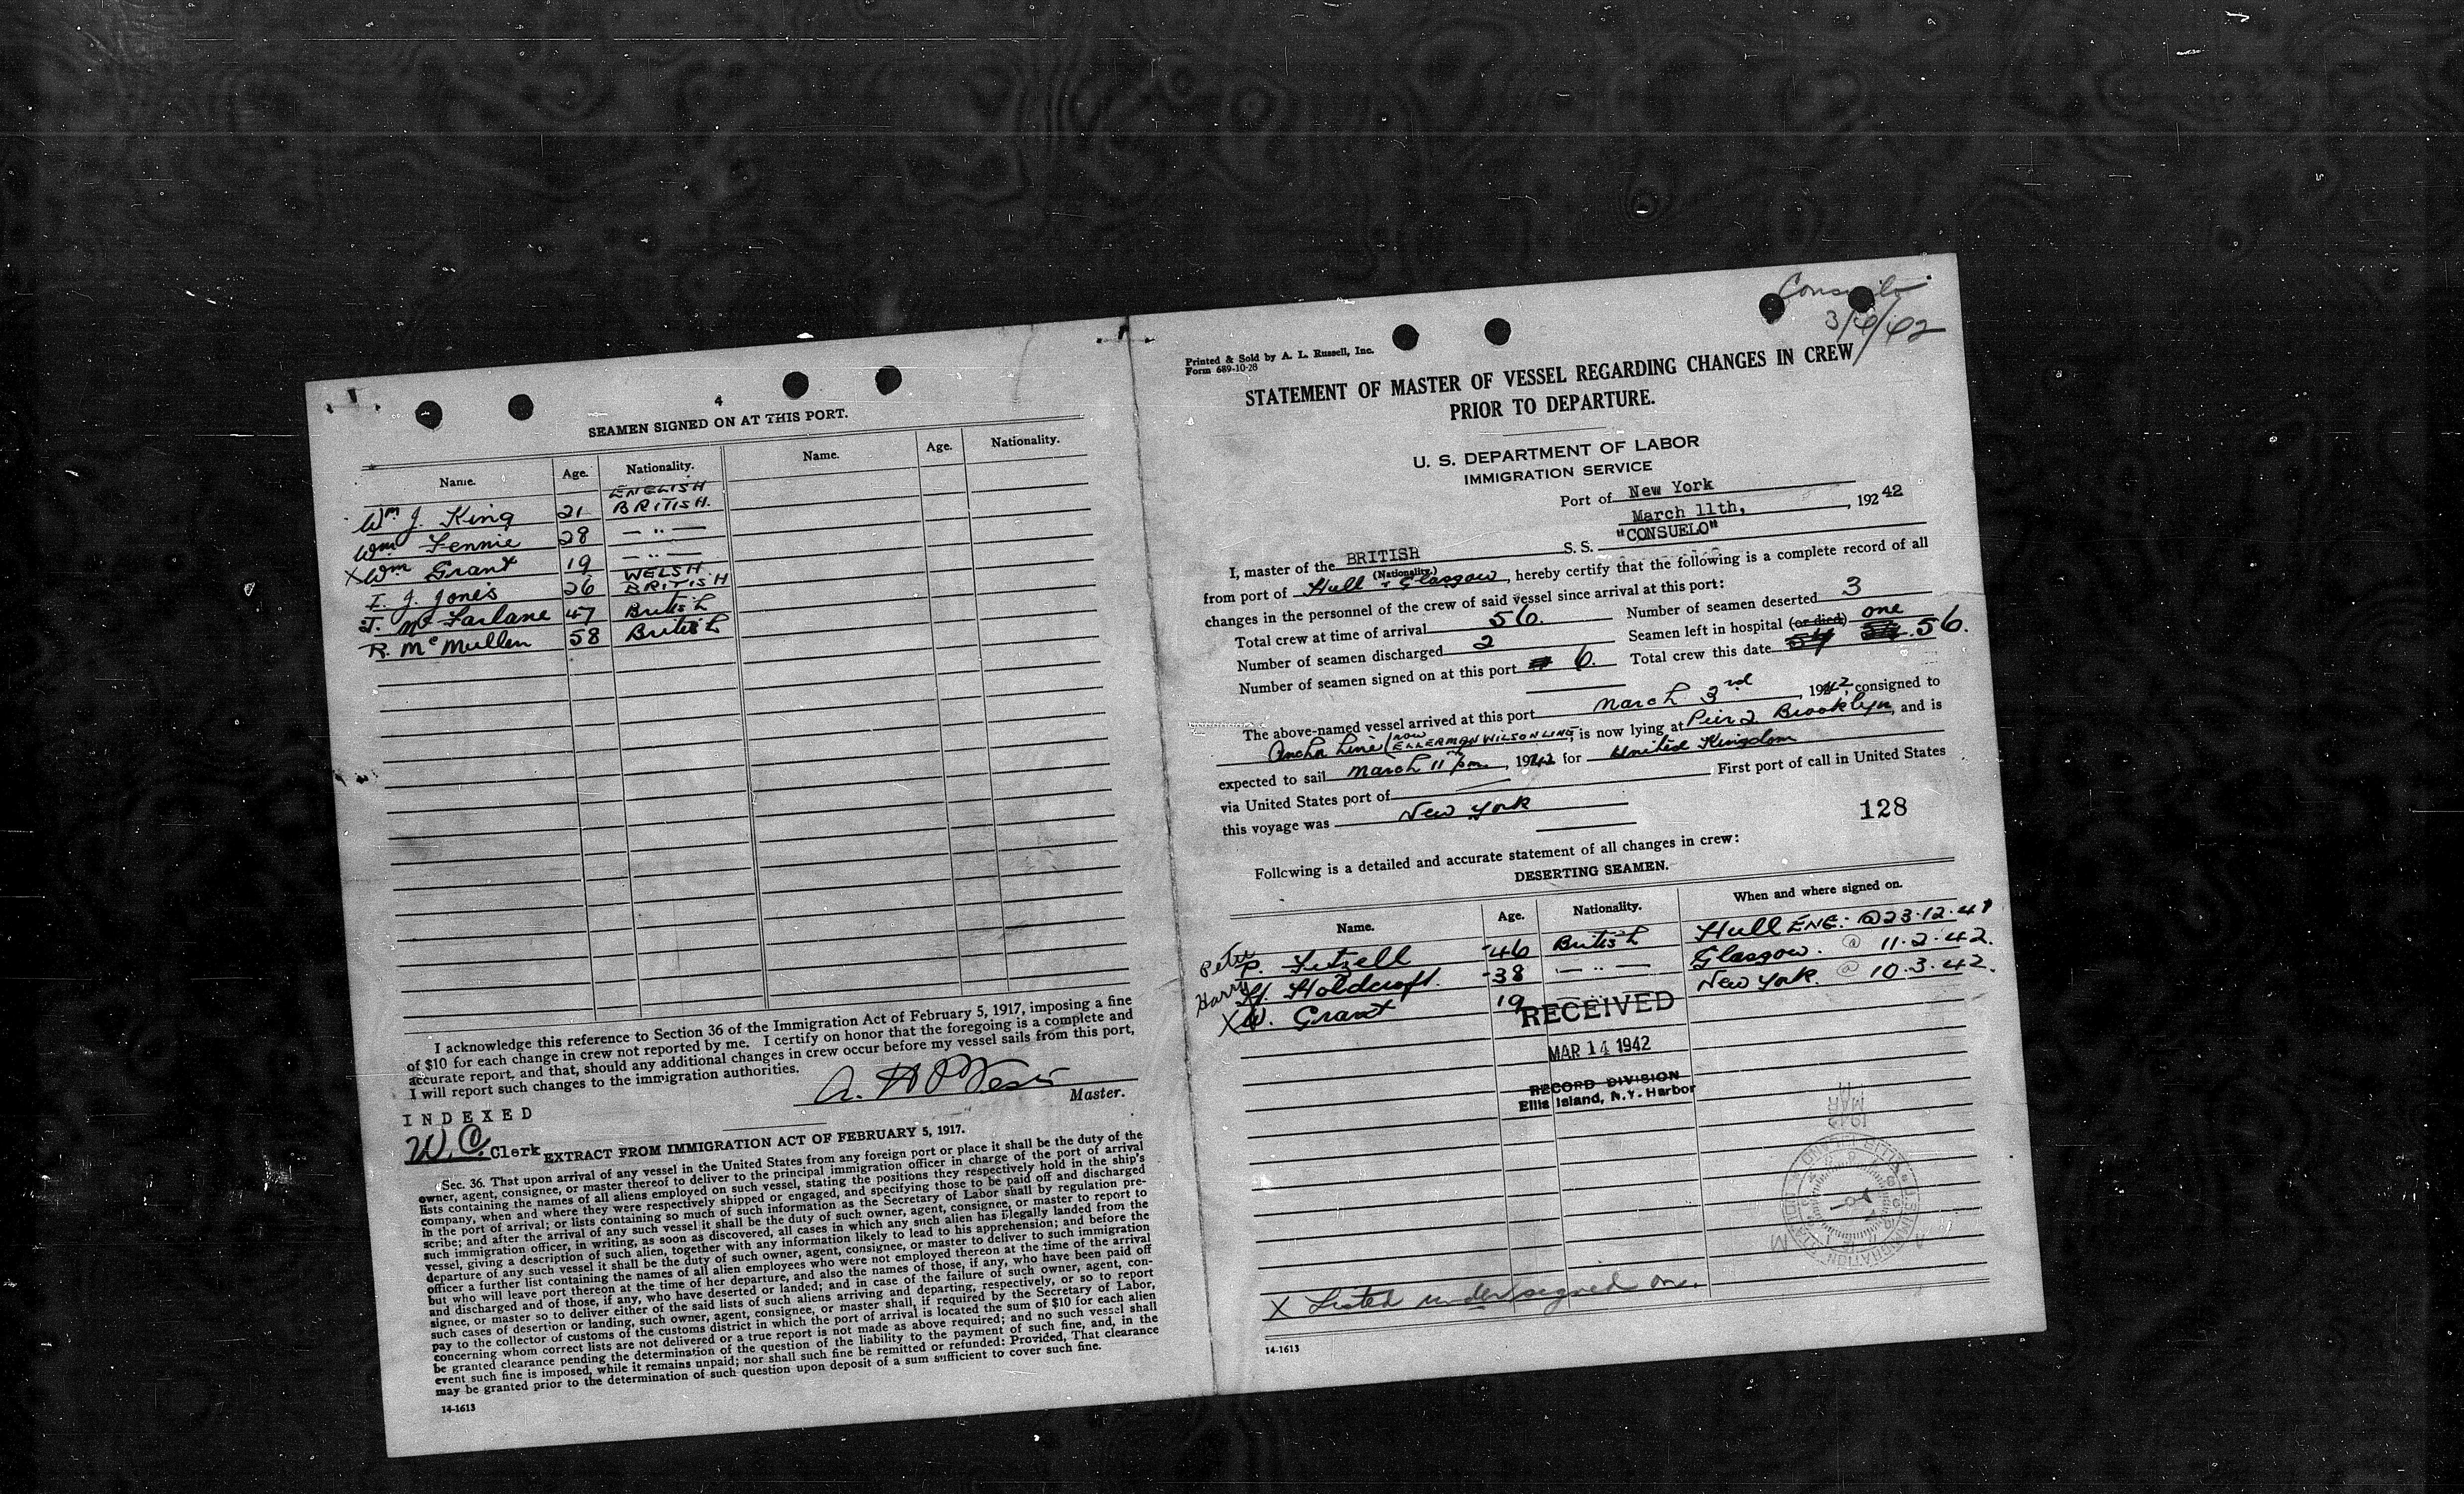 4
SEAMEN SIGNED ON AT THIS PORT.
Name. Age. Nationality. Name. Age. Nationality.
ENGLISH
Wm J. King 21 BRITISH.
Wm Fennie 28 — " —
X Wm Grant 19 — " —
WELSH
I. J. Jones 26 BRITISH
J. McFarlane 47 British
R. McMullen 58 British
I acknowledge this reference to Section 36 of the Immigration Act of February 5, 1917, imposing a fine
of $10 for each change in crew not reported by me. I certify on honor that the foregoing is a complete and
accurate report, and that, should any additional changes in crew occur before my vessel sails from this port,
I will report such changes to the immigration authorities.
Master.
INDEXED
W. C. Clerk
EXTRACT FROM IMMIGRATION ACT OF FEBRUARY 5, 1917.
Sec. 36. That upon arrival of any vessel in the United States from any foreign port or place it shall be the duty of the
owner, agent, consignee, or master thereof to deliver to the principal immigration officer in charge of the port of arrival
lists containing the names of all aliens employed on such vessel, stating the positions they respectively hold in the ship's
company, when and where they were respectively shipped or engaged, and specifying those to be paid off and discharged
in the port of arrival; or lists containing so much of such information as the Secretary of Labor shall by regulation pre-
scribe; and after the arrival of any such vessel it shall be the duty of such owner, agent, consignee, or master to report to
such immigration officer, in writing, as soon as discovered, all cases in which any such alien has illegally landed from the
vessel, giving a description of such alien, together with any information likely to lead to his apprehension; and before the
departure of any such vessel it shall be the duty of such owner, agent, consignee, or master to deliver to such immigration
officer a further list containing the names of all alien employees who were not employed thereon at the time of the arrival
but who will leave port thereon at the time of her departure, and also the names of those, if any, who have been paid off
and discharged and of those, if any, who have deserted or landed; and in case of the failure of such owner, agent, con-
signee, or master so to deliver either of the said lists of such aliens arriving and departing, respectively, or so to report
such cases of desertion or landing, such owner, agent, consignee, or master shall, if required by the Secretary of Labor,
pay to the collector of customs of the customs district in which the port of arrival is located the sum of $10 for each alien
concerning whom correct lists are not delivered or a true report is not made as above required; and no such vessel shall
be granted clearance pending the determination of the question of the liability to the payment of such fine, and, in the
event such fine is imposed, while it remains unpaid; nor shall such fine be remitted or refunded: Provided, That clearance
may be granted prior to the determination of such question upon deposit of a sum sufficient to cover such fine.
14-1613
Consuelo
3/6/42
Printed & Sold by A. L. Russell, Inc.
Form 689-10-28
STATEMENT OF MASTER OF VESSEL REGARDING CHANGES IN CREW
PRIOR TO DEPARTURE.
U. S. DEPARTMENT OF LABOR
IMMIGRATION SERVICE
Port of New York
March 11th, , 192 42
I, master of the BRITISH S. S. "CONSUELO"
(Nationality.)
from port of Hull & Glasgow, hereby certify that the following is a complete record of all
changes in the personnel of the crew of said vessel since arrival at this port:
Total crew at time of arrival 56. Number of seamen deserted 3
Number of seamen discharged 2 Seamen left in hospital (or died) one
Number of seamen signed on at this port 6. Total crew this date 54 54 56.
The above-named vessel arrived at this port March 3rd, 1942, consigned to
Anchor Line (now ELLERMAN WILSON LINE, is now lying at Pier 2 Brooklyn, and is
expected to sail March 11th pm, 1942 for United Kingdom
via United States port of First port of call in United States
this voyage was New York
128
Following is a detailed and accurate statement of all changes in crew:
DESERTING SEAMEN.
Name. Age. Nationality. When and where signed on.
Peter P. Fitzell 46 British Hull ENG: @ 23.12.41
Harry H. Holdcroft. 38 — " — Glasgow. @ 11.2.42.
X W. Grant 19 New York. @ 10.3.42.
RECEIVED
MAR 14 1942
RECORD DIVISION
Ellis Island, N.Y. Harbor
X Listed under signed on.
14-1613